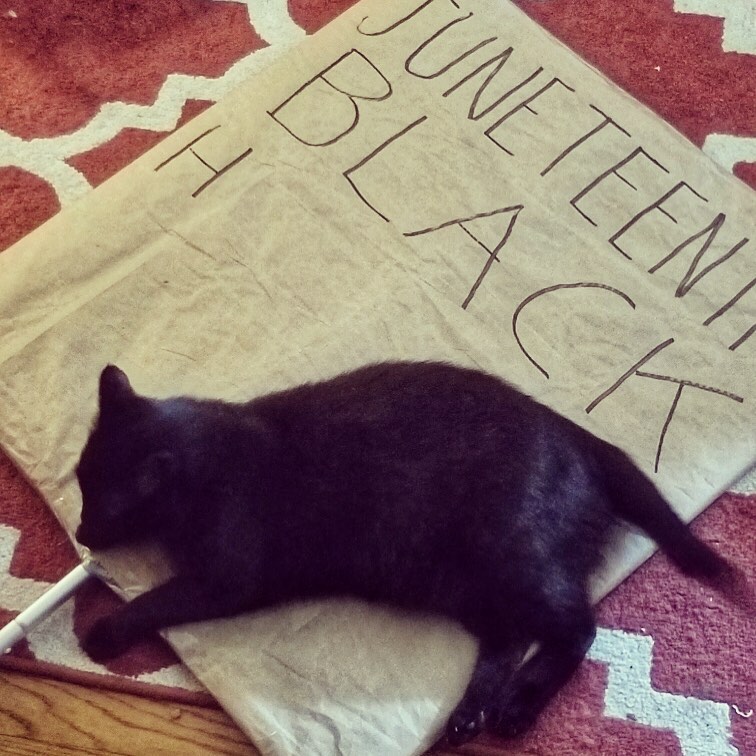 JUNETEENTH
BLACK
H